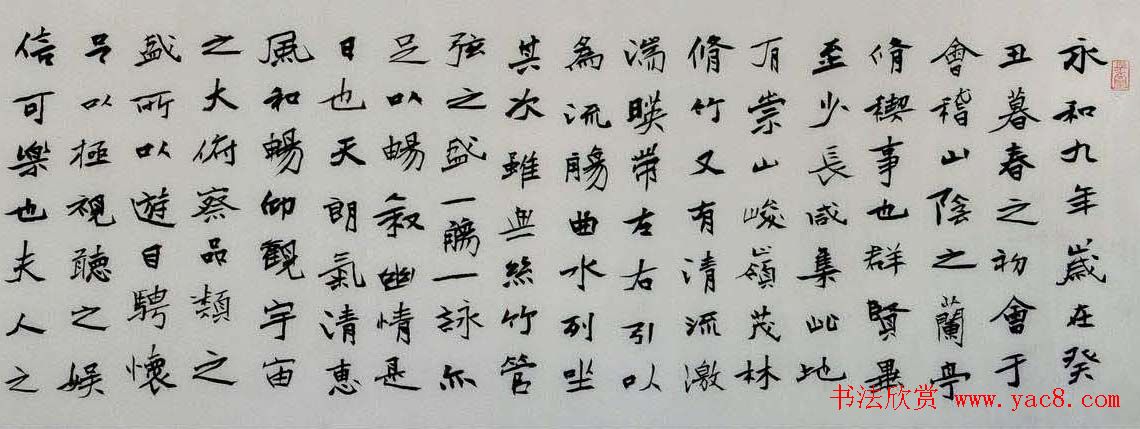 永和九年歲在癸
丑暮春之初會于
會稽山陰之蘭亭
脩稧事也群賢畢
至少長咸集此地
有崇山峻嶺茂林
脩竹又有清流激
湍暎帶左右引以
為流觴曲水列坐
其次雖無絲竹管
弦之盛一觴一詠亦
足以暢敘幽情是
日也天朗氣清惠
風和暢仰觀宇宙
之大俯察品類之
盛所以遊目騁懷
足以極視聽之娛
信可樂也夫人之
书法欣赏 www.yac8.com